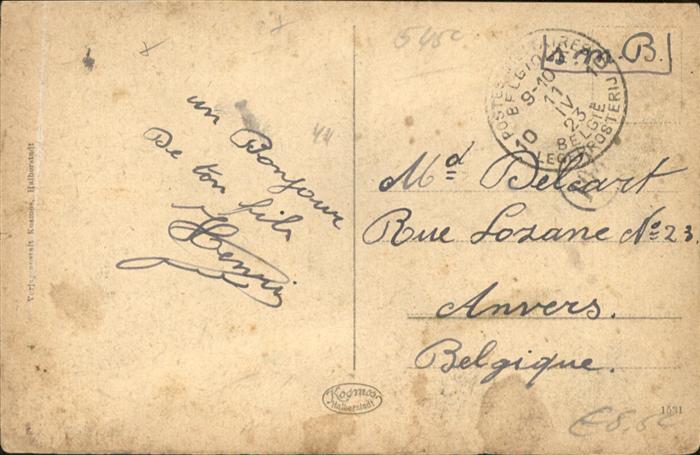 un Bonjour
De ton fils
Henri
S.M.B.
POSTES MILITAIRES
BELGIQUE 10
9-10
11
IV
23
10 BELGIË
LEGERPOSTERIJ
Md Delcart
Rue Lozane No 23
Anvers.
Belgique.
Kosmos
Halberstadt
Verlagsanstalt Kosmos, Halberstadt
1531